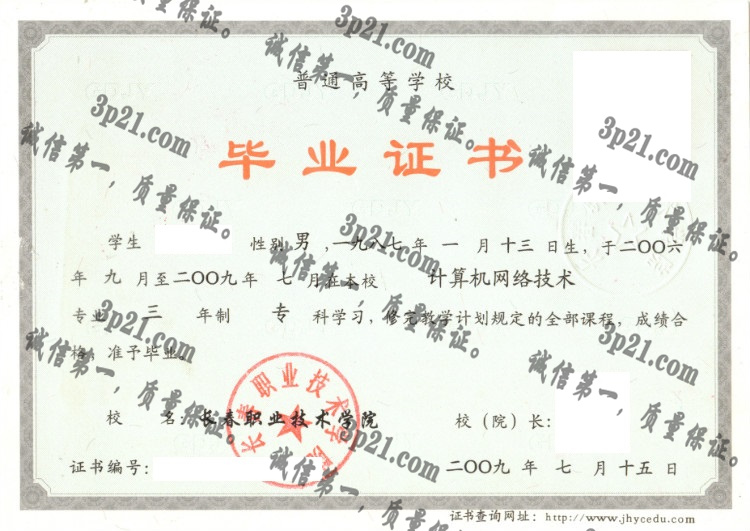 普通高等学校
毕业证书
学生 性别 男，一九八七年 一 月 十三 日生，于二〇〇六
年 九 月至二〇〇九年 七 月在本校 计算机网络技术
专业 三 年制 专 科学习，修完教学计划规定的全部课程，成绩合
格，准予毕业。
校 名：长春职业技术学院
校（院）长：
证书编号：
二〇〇九 年 七 月 十五 日
证书查询网址：http://www.jhycedu.com
长春职业技术学院
3p21.com
诚信第一，质量保证。
3p21.com
诚信第一，质量保证。
3p21.com
诚信第一，质量保证。
3p21.com
诚信第一，质量保证。
3p21.com
诚信第一，质量保证。
3p21.com
诚信第一，质量保证。
3p21.com